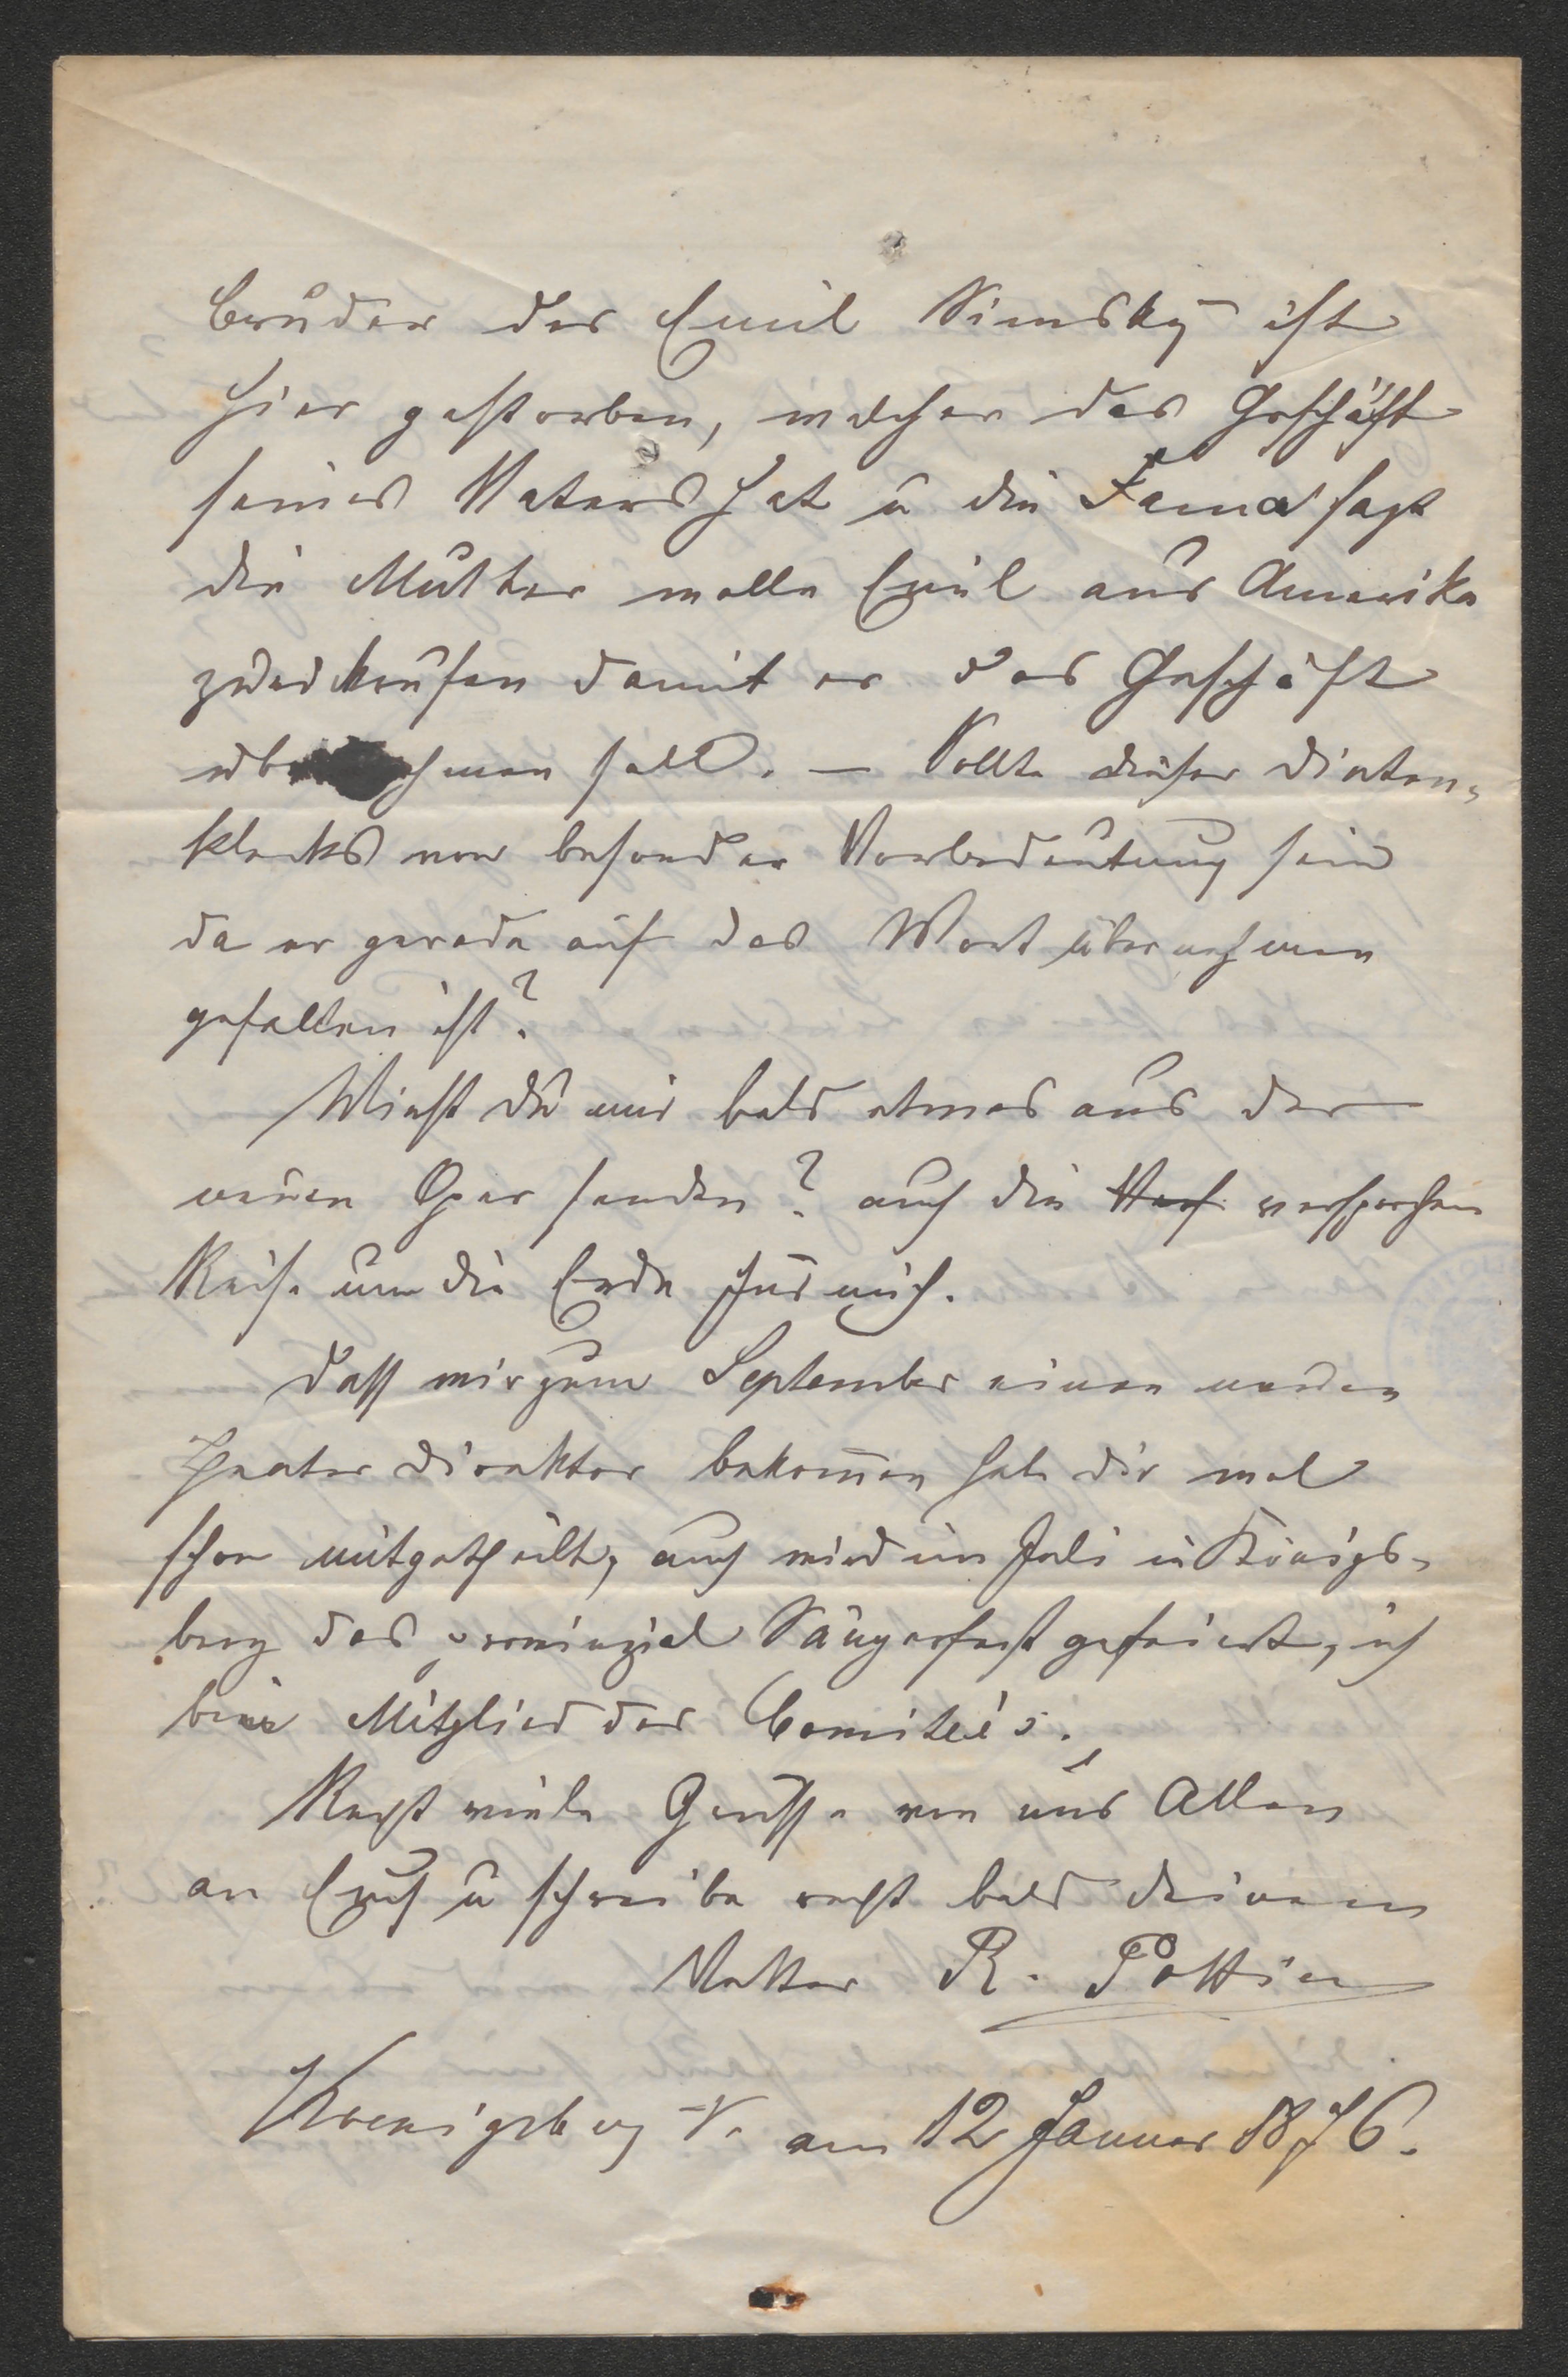 bruder des Emil Simsky ist
hier gestorben, welcher das Geschäft
seines Vaters hat u die Fama sagt
die Mutter wolle Emil aus Amerika
zurückrufen damit er das Geschäft
über hmen soll. — Sollte dieser Dinten-
klecks von besonder Vorbedeutung sein
da er gerade auf das Wort übernehmen
gefallen ist?
Wirst du mir bald etwas aus der
neuen Oper senden? auch die Vers versprochen
Reise um die Erde für mich.
Dass wir zum September einen neuen
Theater Direktor bekom̄en habe dir mal
schon mitgetheilt, auch wird im Juli in Königs-
berg das provinzial Sängerfest gefeiert, ich
bin Mitglied des Comiteé's.
Recht viele Grüsse von uns Allen
an Euch u schreibe recht bald deinem
Vetter R. Pottien
Koenigsberg am 12 Januar 1876.